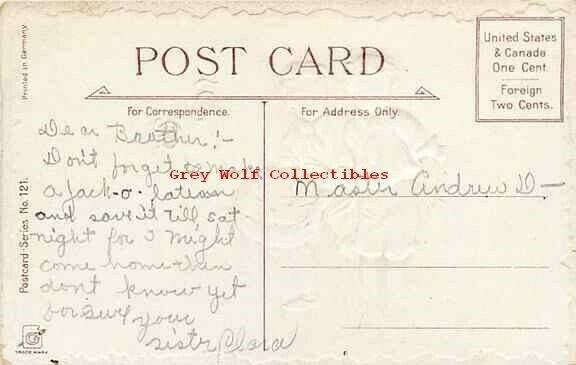 Printed in Germany
POST CARD
United States
& Canada
One Cent.
Foreign
Two Cents.
For Correspondence.
For Address Only.
Postcard Series No. 121.
Dear Brother!-
Don't forget to make
a jack-o-latern
and save it till sat
night for I might
come home then
don't know yet
for sure
your
sister Clara
Master Andrew D-
Grey Wolf Collectibles
G
TRADE MARK